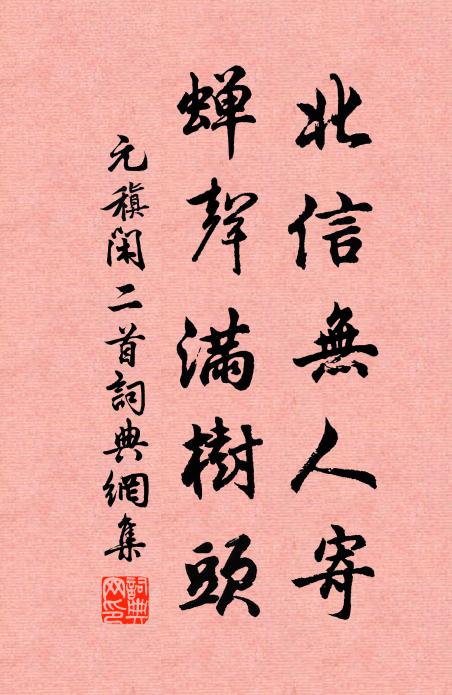 北信無人寄
蟬聲滿樹頭
元稹閑二首詞典網集
詞典網印